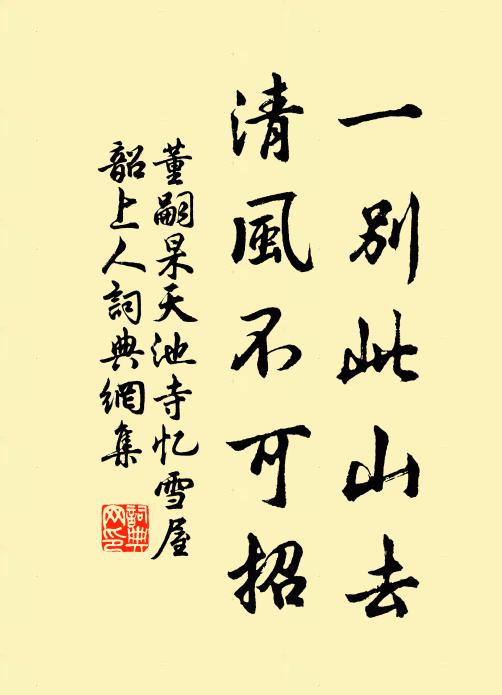 一别此山去
清風不可招
董嗣杲天池寺忆雪屋
韶上人詞典網集
詞典
网印